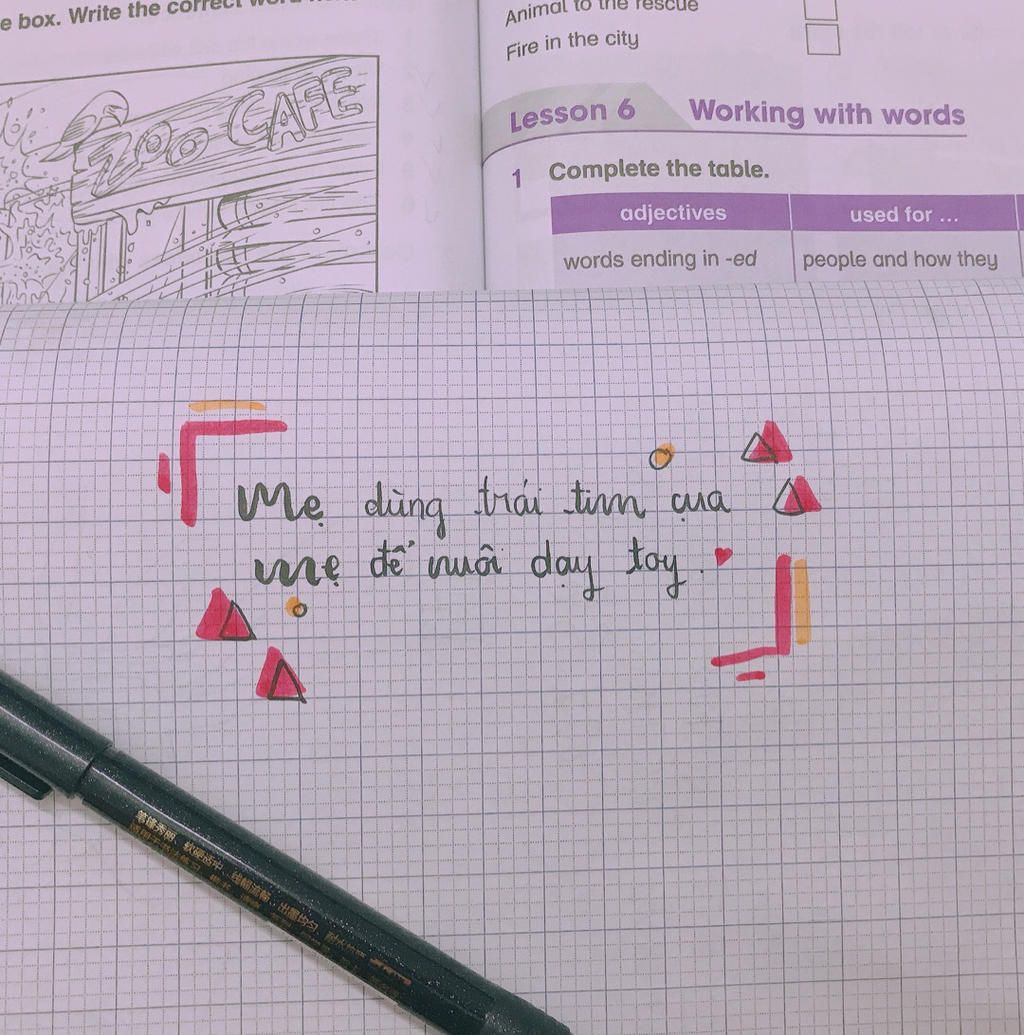 e box. Write the correct word
Animal to the rescue
Fire in the city
ZOO CAFE
Lesson 6 Working with words
1 Complete the table.
adjectives used for ...
words ending in -ed people and how they
Mẹ dùng trái tim của
mẹ để nuôi dạy toy.
笔锋秀丽、软硬适中、线幅流畅、出墨均匀